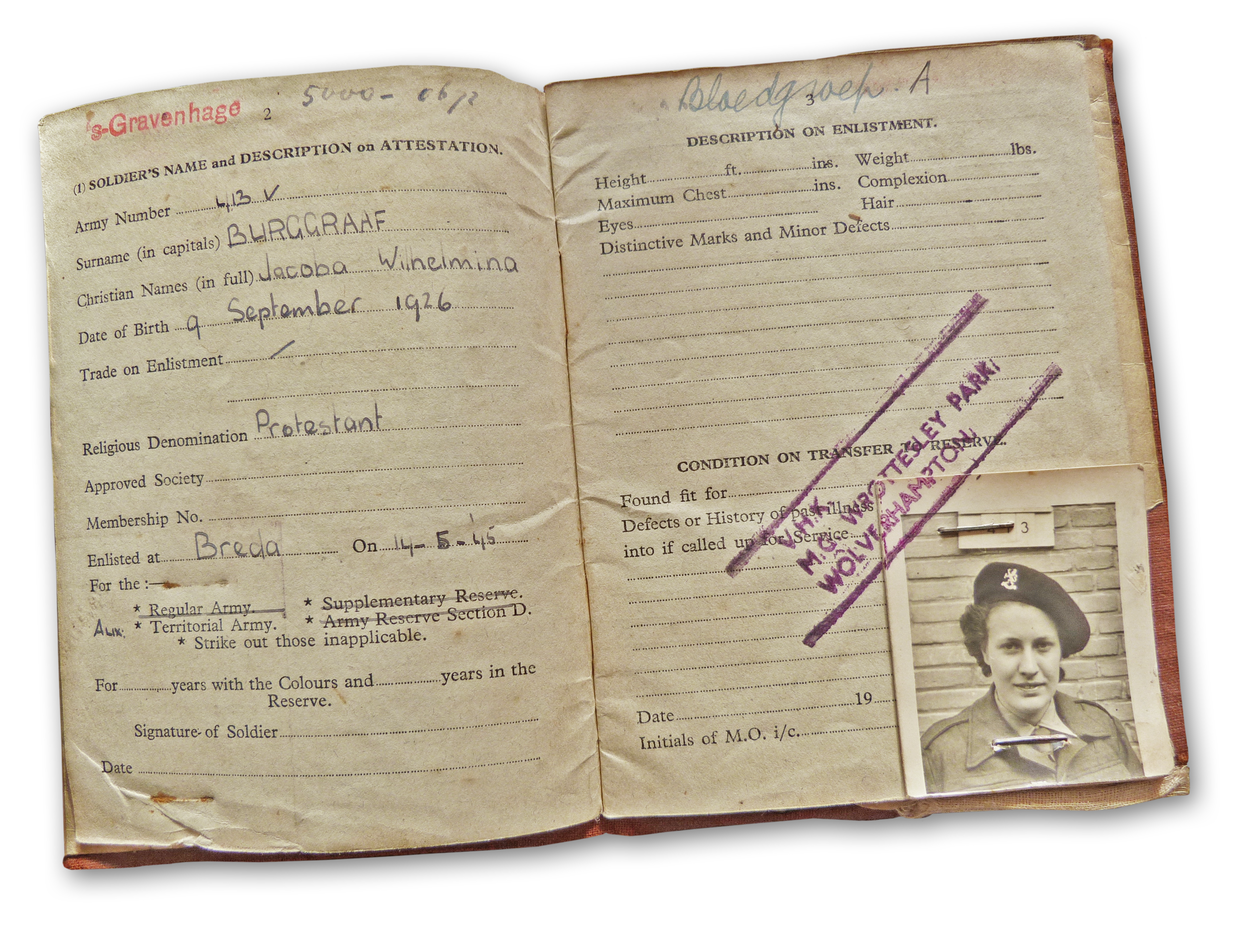 's-Gravenhage
2
5000-
(1) SOLDIER'S NAME and DESCRIPTION on ATTESTATION.
Army Number 413 V
Surname (in capitals) BURGGRAAF
Christian Names (in full) Jacoba Wilhelmina
Date of Birth 9 September 1926
Trade on Enlistment
Religious Denomination Protestant
Approved Society
Membership No.
Enlisted at Breda On 14-5-45
For the :—
* Regular Army. * Supplementary Reserve.
Aux. * Territorial Army. * Army Reserve Section D.
* Strike out those inapplicable.
For years with the Colours and years in the
Reserve.
Signature of Soldier
Date
Bloedgroep A
3
DESCRIPTION ON ENLISTMENT.
Height ft. ins. Weight lbs.
Maximum Chest ins. Complexion
Eyes Hair
Distinctive Marks and Minor Defects
CONDITION ON TRANSFER TO RESERVE.
Found fit for
Defects or History of past illness
into if called up for Service
V.H.K.
M.C. WROTTESLEY PARK,
WOLVERHAMPTON.
3
Date 19
Initials of M.O. i/c.